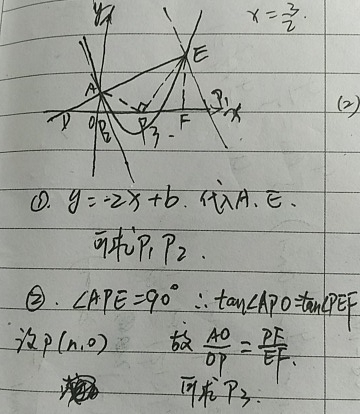 y
x = 3/2.
E
A
(2)
D
O
P₂
P₃
F
P₁
x
①. y = -2x + b. 代入A、E、
可求P₁ P₂.
②. ∠APE = 90° ∴ tan∠APO = tan∠PEF
设P(n,0) 故 AO/OP = PF/EF.
可求P₃.